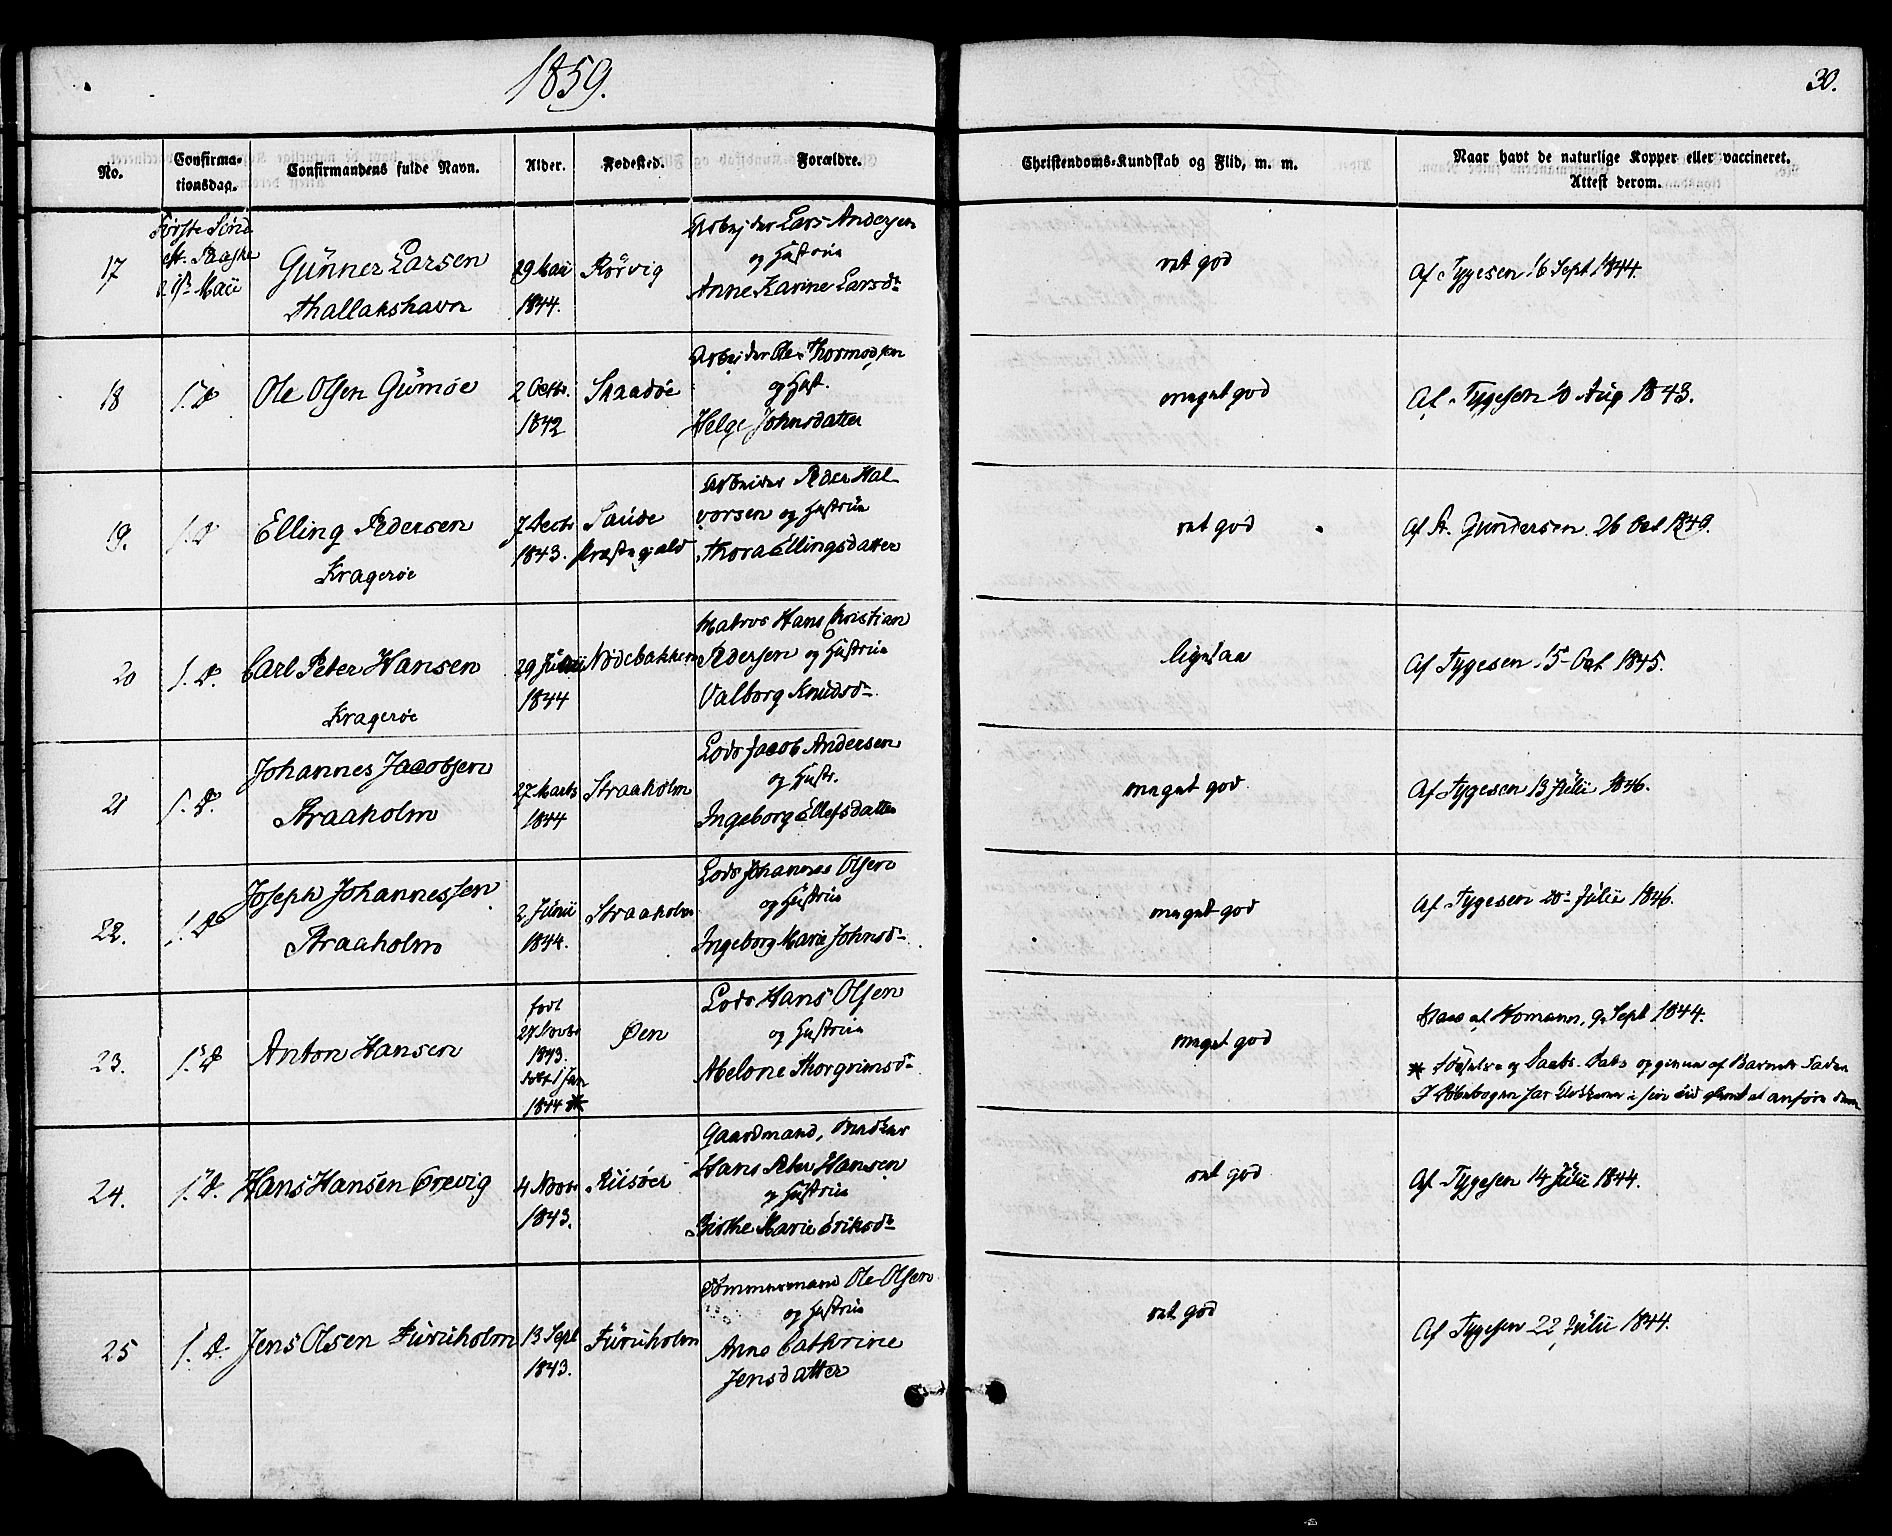 1859.
30.
No.
Confirma-
tionsdag.
Confirmandens fulde Navn.
Alder.
Fødested.
Forældre.
Christendoms-Kundskab og Flid, m. m.
Naar havt de naturlige Kopper eller vaccineret.
Attest derom.
17
Første Sønd
eft. Paaske
Maii
Gunner Larsen
Thallakshavn
29 Maii
1844.
Rörvig
Arbejder Lars Andersen
og Hustrue
Anne Karine Larsdr
ret god
Af Tygesen 16 Sept 1844.
18
1. D
Ole Olsen Gumöe
2 Octbr.
1842
Skaadöe
Arbejder Ole Thormodsen
og Hust.
Helge Johnsdatter
meget god
Af Tygesen 10 Aug 1843.
19.
1. D
Elling Pedersen
Kragerøe
7 Decbr
1843.
Saude
Præstegjæld
Arbeider Peder Hal-
vorsen og Hustrue
Thora Ellingsdatter
ret god
af A. Gundersen 26 Oct 1849.
20
1. D.
Carl Peter Hansen
Kragerøe
29
1844
Nødebakken
Matros Hans Christian
Pedersen og Hustrue
Valborg Knudsdr
ligesaa
Af Tygesen 15 Oct 1845.
21
1. D.
Johannes Jacobsen
Straaholm
27 Marts
1844
Straaholm
Lods Jacob Andersen
og Hustr.
Ingeborg Ellefsdatter
meget god
Af Tygesen 13 Julii 1846.
22.
1. D
Joseph Johannessen
Straaholm
2 Junii
1844.
Straaholm
Lods Johannes Olsen
og Hustrue
Ingeborg Marie Johnsdr
meget god
Af Tygesen 20 Julii 1846.
23.
1. D
Anton Hansen
født
27 Novbr
1843.
døbt 1 Jan
1844 *
Øen
Lods Hans Olsen
og Hustrue
Abelone Thorgrimsdr
meget god
Homann, 9 Sept 1844.
* Fødsels og Daabs Data opgivne af Barnets Fader
I Døbebogen har Klokkeren i sin tid glemt at anføre dem
24.
1. D.
Hans Hansen Crevig
4 Novbr
1843.
Riisöer
Gaardmand,
Hans Peter Hansen
og Hustrue
Birthe Marie Eriksdr
ret god
Af Tygesen 14 Julii 1844.
25
1. D.
Jens Olsen Furuholm
13 Sept
1843.
Furuholm
Tömmermand Ole Olsen
og Hustrue
Anne Cathrine
Jensdatter
ret god
Af Tygesen 22 Julii 1844.